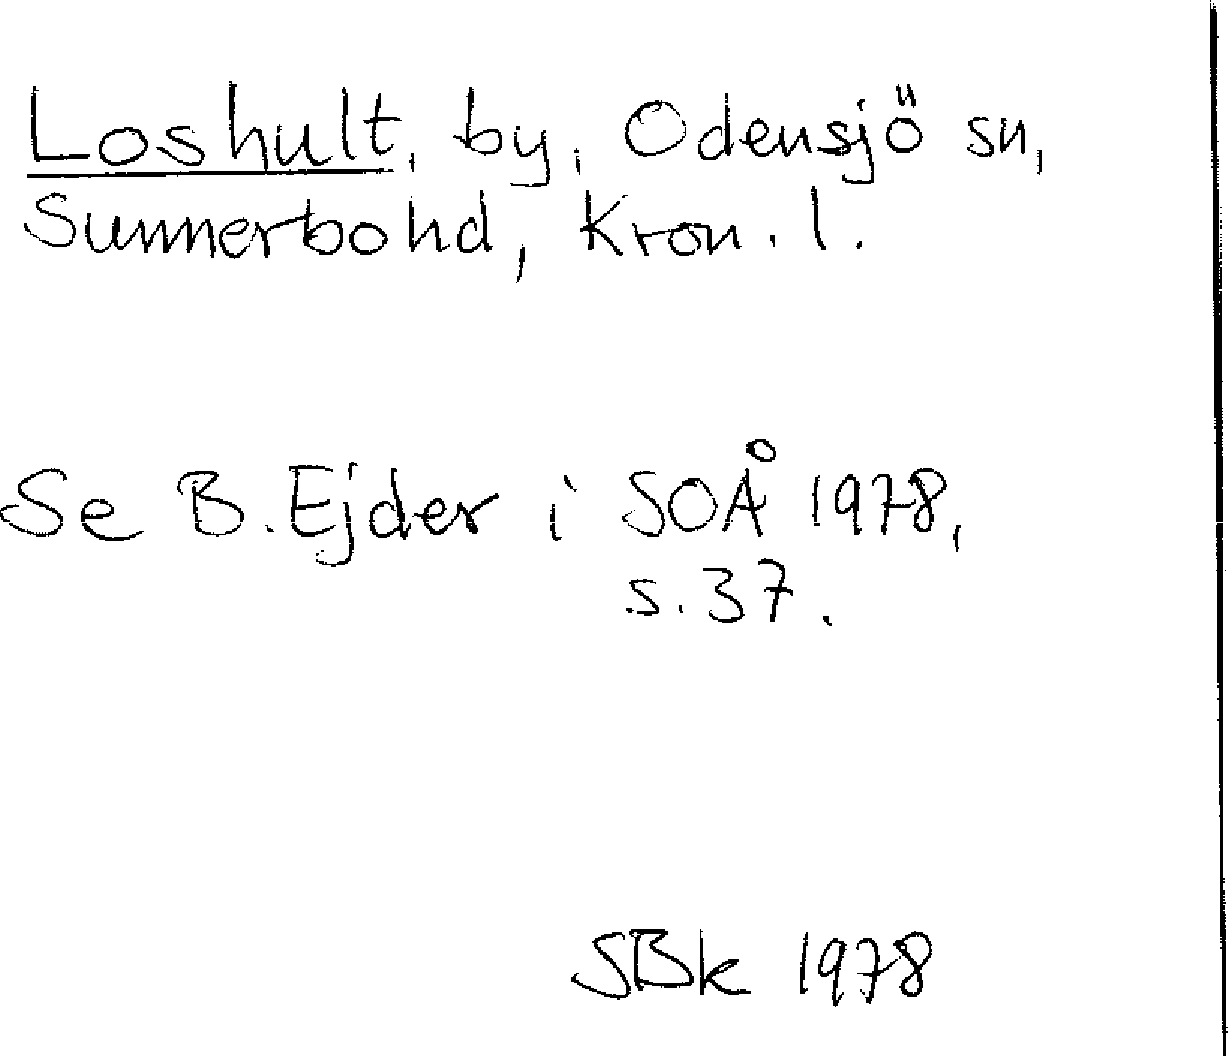 Loshult, by, Odensjö sn,
Sunnerbo hd, Kron. l.
Se B. Ejder i SOÅ 1978,
s. 37.
SBk 1978